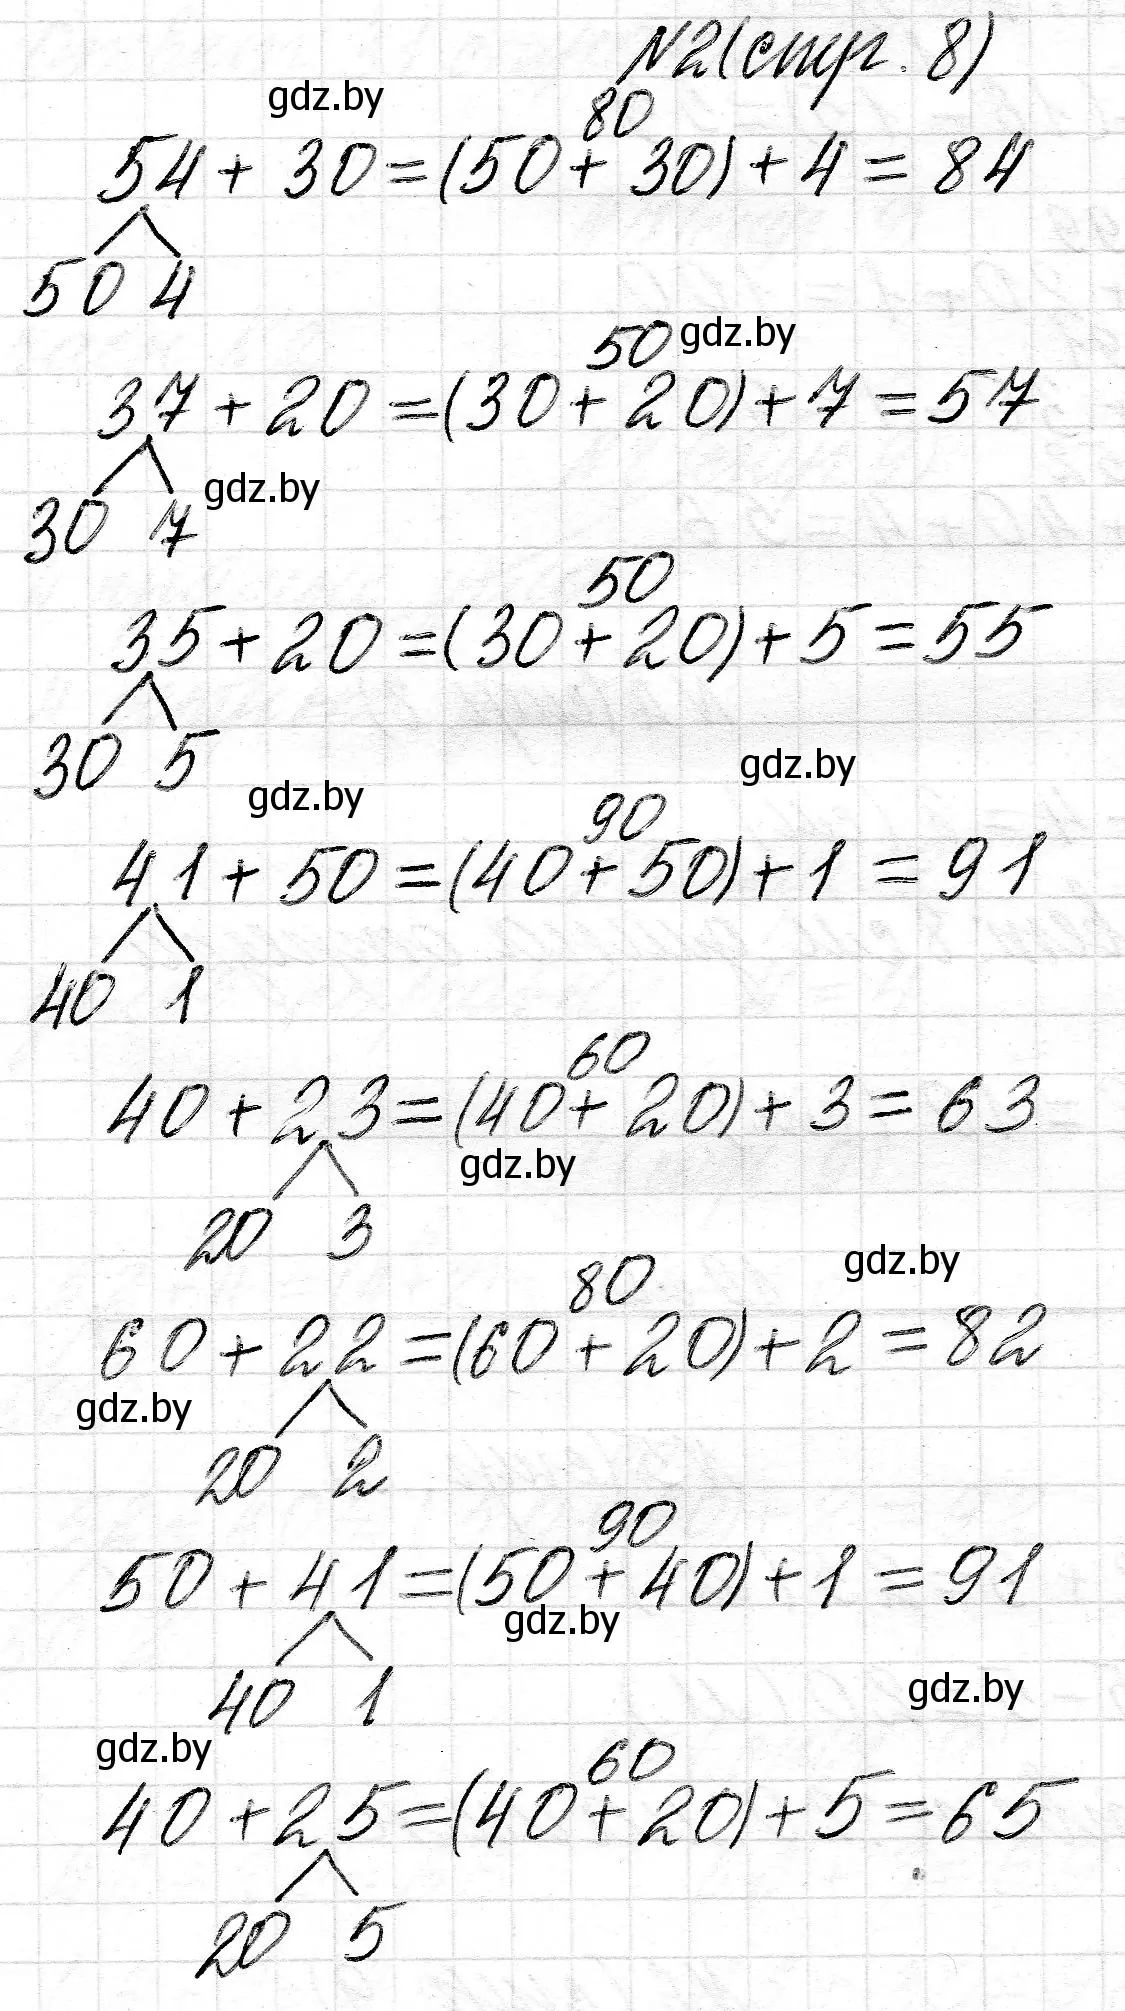 N2(стр. 8)
gdz.by
80
54 + 30 = (50 + 30) + 4 = 84
50 4
50 gdz.by
37 + 20 = (30 + 20) + 7 = 57
30 7 gdz.by
50
35 + 20 = (30 + 20) + 5 = 55
30 5
gdz.by gdz.by
90
41 + 50 = (40 + 50) + 1 = 91
40 1
60
40 + 23 = (40 + 20) + 3 = 63
gdz.by
20 3
80 gdz.by
60 + 22 = (60 + 20) + 2 = 82
gdz.by
20 2
90
50 + 41 = (50 + 40) + 1 = 91
gdz.by
40 1
gdz.by
gdz.by 60
40 + 25 = (40 + 20) + 5 = 65
20 5